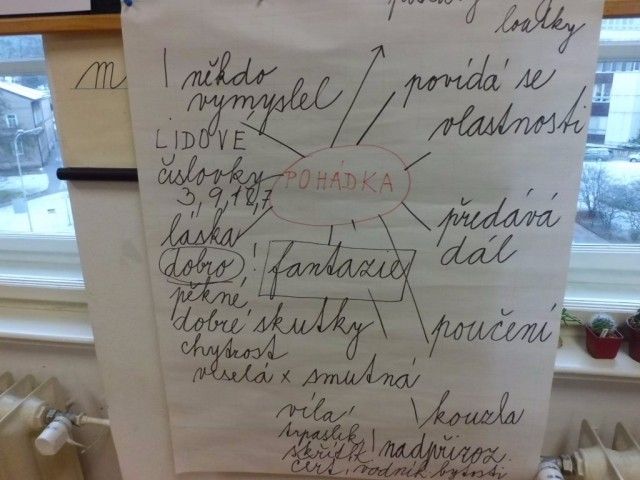 loutky
někdo
vymyslel
povídá se
vlastnosti
LIDOVÉ
číslovky
3, 9, 12, 7
POHÁDKA
láska
dobro !
předává
dál
fantazie
pěkné,
dobré skutky
poučení
chytrost
veselá x smutná
víla
trpaslík
skřítek
čert, vodník
kouzla
nadpřiroz.
bytosti
m